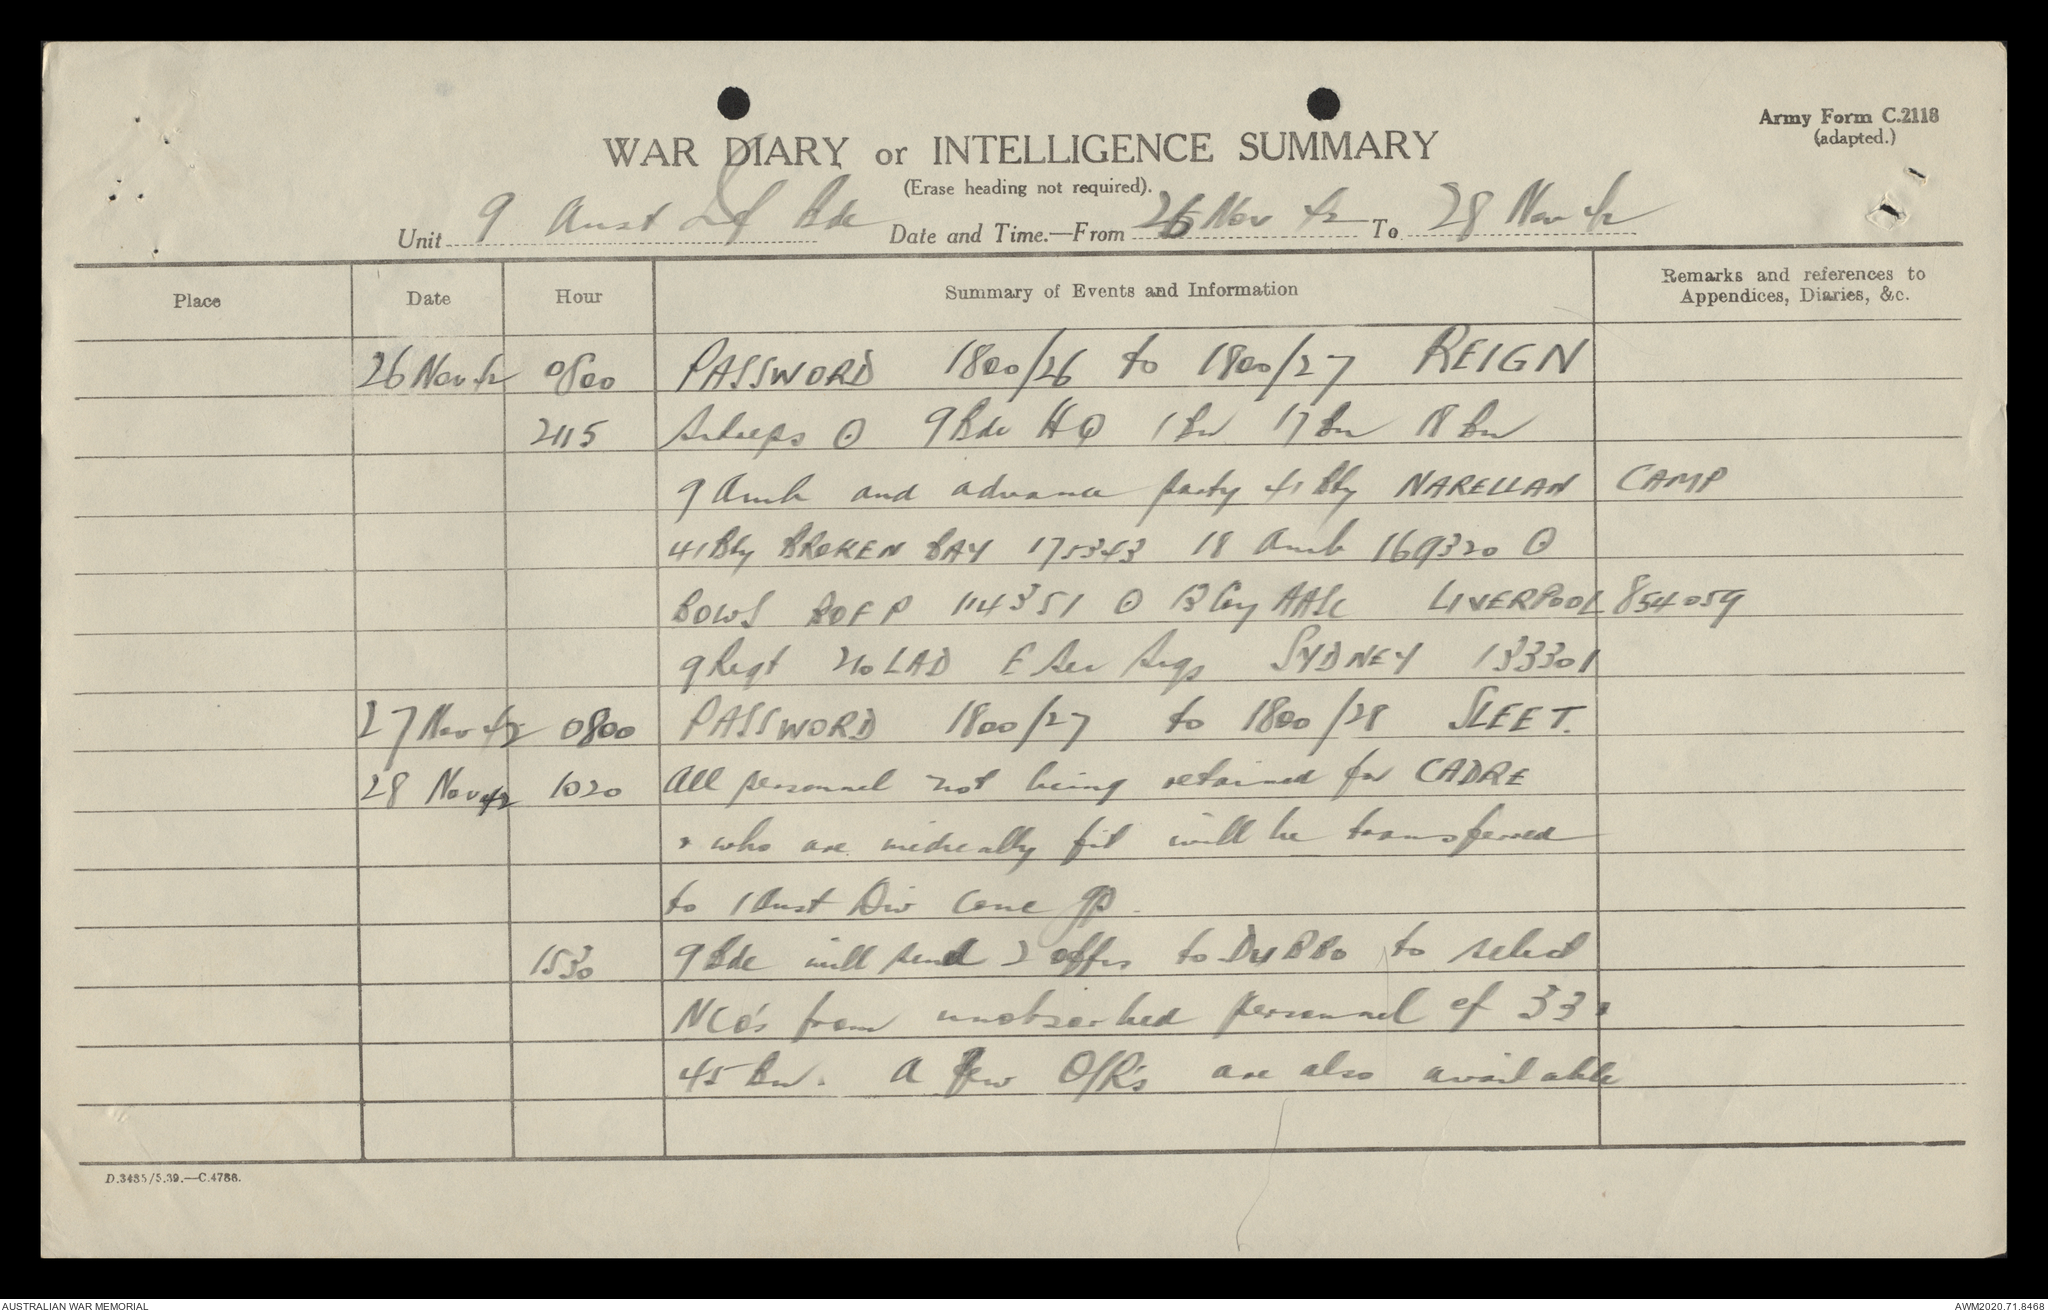 Army Form C.2118
(adapted.)
WAR DIARY or INTELLIGENCE SUMMARY
(Erase heading not required).
Unit 9 Aust Inf Bde Date and Time.—From 26 Nov 42 To 28 Nov 42
Place Date Hour Summary of Events and Information Remarks and references to Appendices, Diaries, &c.
26 Nov 42 0800 PASSWORD 1800/26 to 1800/27 REIGN
2115 9 Bde HQ 1 Bn 17 Bn 18 Bn
9 Amb and advance party 41 Bty NARELLAN CAMP
41 Bty BROKEN BAY 175343 18 Amb 169320
BOWS 114351 13 Coy AASC LIVERPOOL 854059
9 Regt LAD E Sec Sigs SYDNEY 133301
27 Nov 42 0800 PASSWORD 1800/27 to 1800/28 SLEET.
28 Nov 42 1020 All personnel not being retained for CADRE
& who are medically fit will be transferred
to 1 Aust Div Conc gp.
1530 9 Bde will send 2 offrs to DUBBO to select
NCO's from unabsorbed personnel of 33 &
45 Bn. A few O/R's are also available
D.3485/5.39.—C.4786.
AUSTRALIAN WAR MEMORIAL AWM2020.71.8468